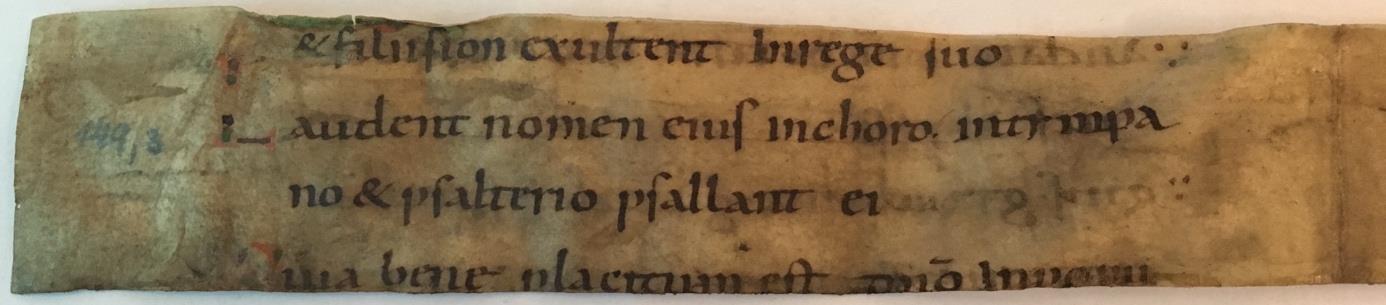 & filii sion exultent in rege suo
149,3 Laudent nomen eius in choro. in tympa
no & psalterio psallant ei
Quia bene placitum est dño in